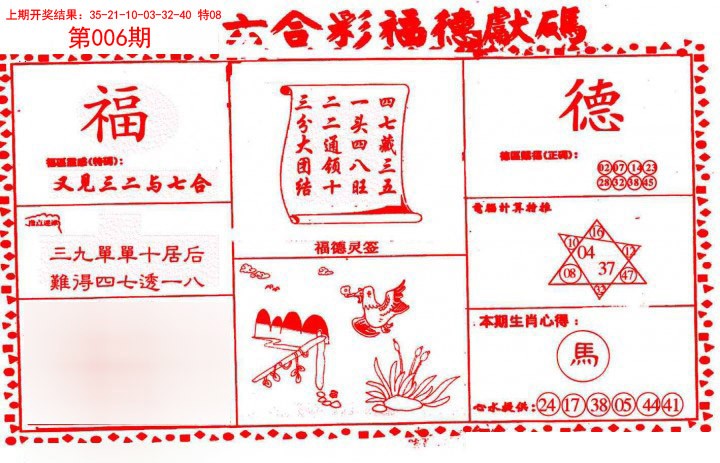 上期开奖结果：35-21-10-03-32-40 特08
第006期
六合彩福德獻碼
福
又見三二与七合
三九單單十居后
難得四七透一八
四七藏三五
一头四八旺
二二通领十
三分大团结
福德灵签
德
02 07 14 23
28 32 38 45
電腦計算精推
16
10
04
37
08
47
本期生肖心得：
馬
心水提供：24 17 38 05 44 41